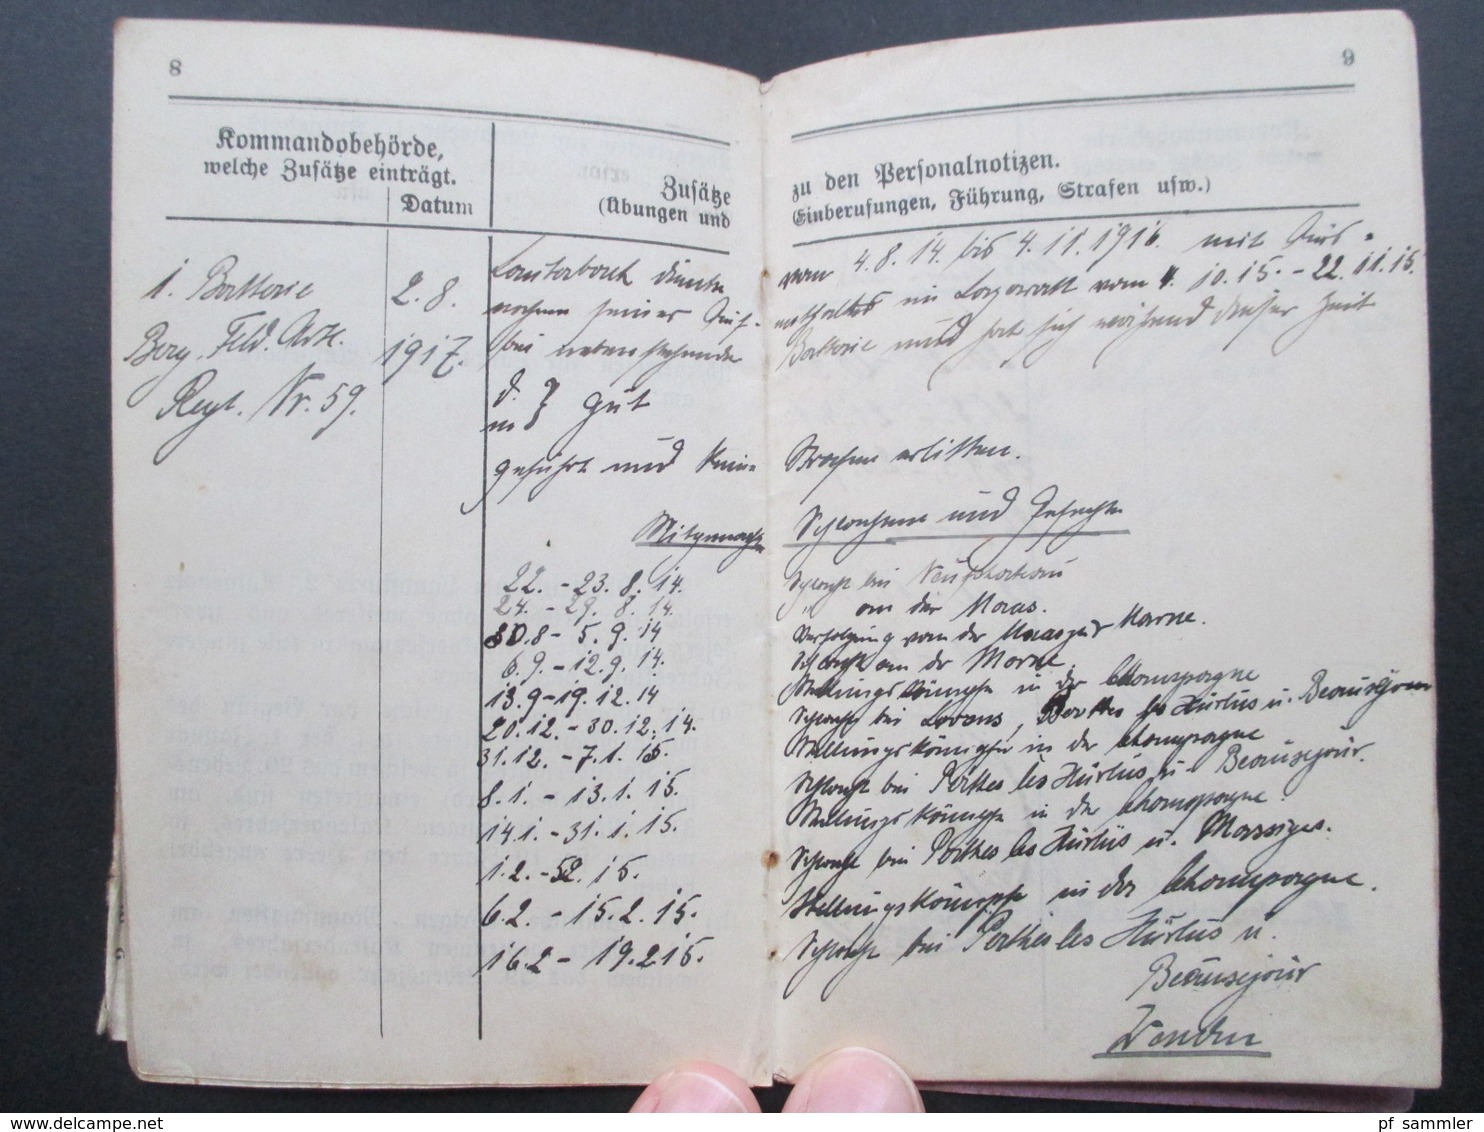 8
Kommandobehörde,
welche Zusätze einträgt.
Datum
Zusätze
(Übungen und
1. Batterie
Berg. Feld. Artl.
Regt. Nr. 59.
2. 8.
1917.
nahme seiner Auf-
bei nebenstehender
d.
m } gut
geführt und keine
Mitgemachte
22. - 23. 8. 14.
24. - 29. 8. 14.
30.8 - 5. 9. 14
6.9. - 12.9. 14.
13.9 - 19.12.14
20.12. - 30.12. 14.
31.12. - 7.1. 15.
8.1. - 13.1. 15.
14.1. - 31.1. 15.
1.2. - 5.2. 15.
6.2. - 15.2. 15.
16.2 - 19.2.15.
9
zu den Personalnotizen.
Einberufungen, Führung, Strafen usw.)
vom 4.8.14. bis 4.11.1916. mit Aus-
enthaltes im Lazarett vom 4.10.15. - 22.11.15.
Batterie und hat sich während dieser Zeit
Strafen erlitten.
Schlachten und Gefechte
Schlacht bei Neufchateau
" an der Maas.
Verfolgung von der Maas zur Marne.
Schlacht an der Marne.
Stellungskämpfe in der Champagne
Schlacht bei Perthes les Hürlus u. Beausejour
Stellungskämpfe in der Champagne
Schlacht bei Perthes les Hürlus u. Beausejour.
Stellungskämpfe in der Champagne.
Schlacht bei Perthes les Hürlus u. Massiges.
Stellungskämpfe in der Champagne.
Schlacht bei Perthes les Hürlus u.
Beausejour
Wenden
delcampe.net
pf_sammler